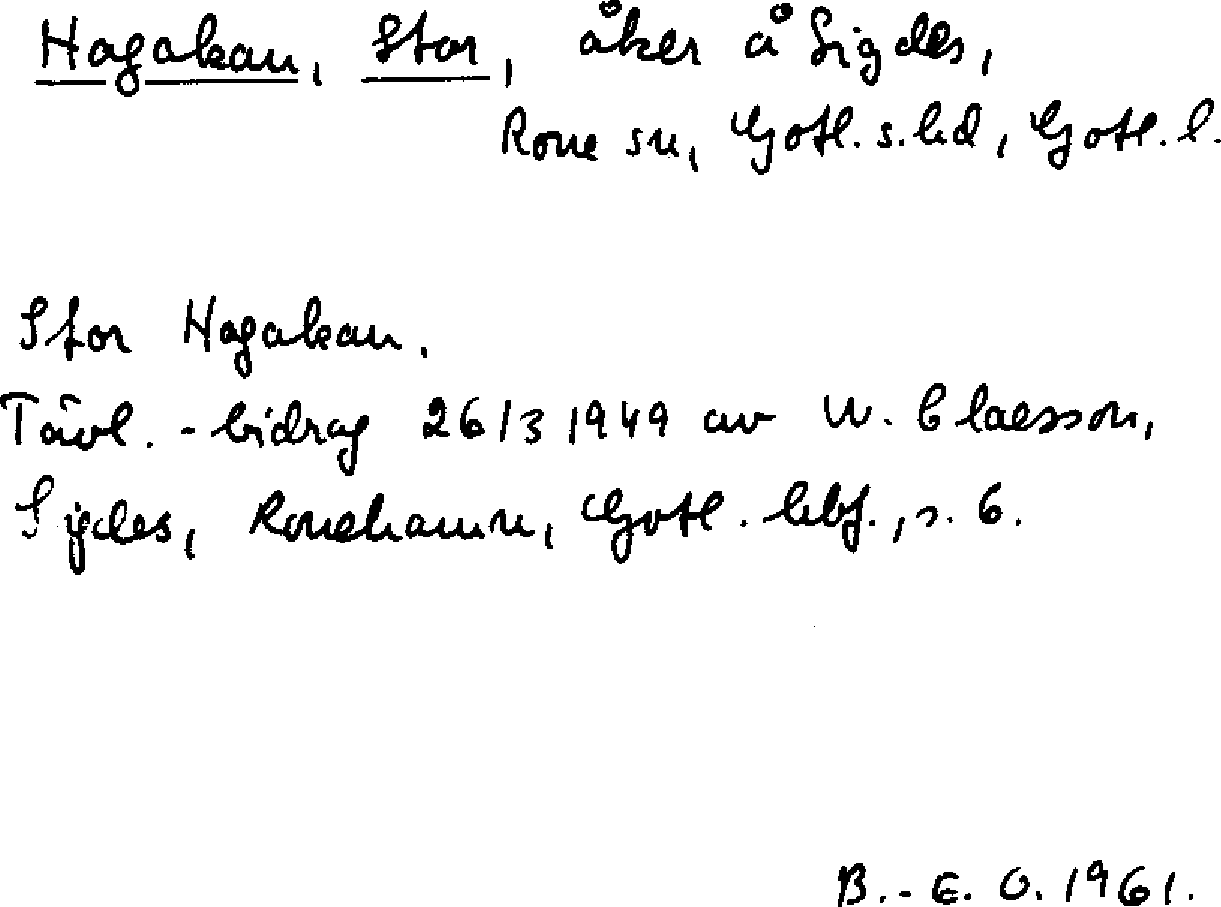 Hagakan, Stor, åker å Sigdes,
Rone sn, Gotl. s. hd, Gotl. l.
Stor Hagakan.
Tävl.-bidrag 26/3 1949 av W. Claesson,
Sigdes, Ronehamn, Gotl. lkbf., s. 6.
B.-E. O. 1961.